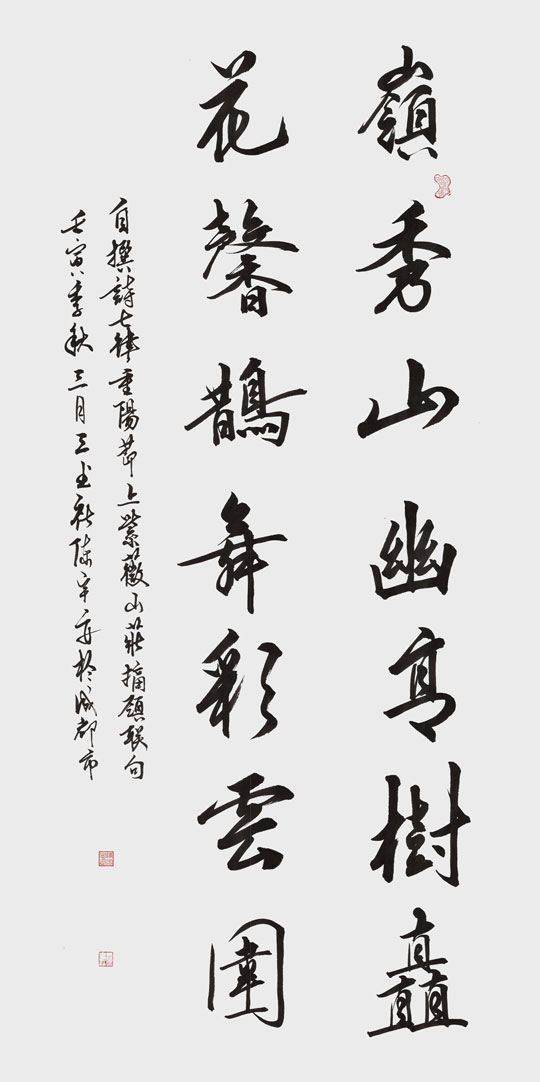 嶺秀山幽高樹矗
花馨鵲舞彩雲圍
自撰詩七律重陽節上紫薇山莊摘頷聯句
壬寅季秋三月三
於成都市